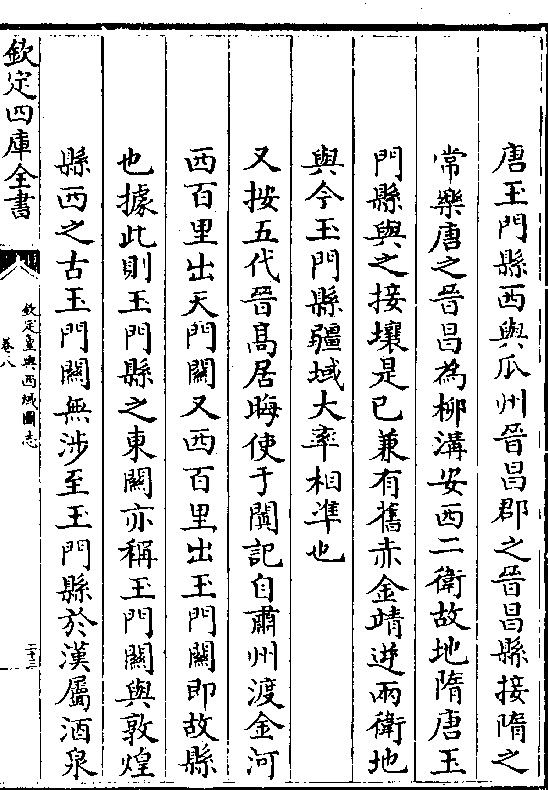 唐玉門縣西與瓜州晉昌郡之晉昌縣接隋之
常樂唐之晉昌為柳溝安西二衛故地隋唐玉
門縣與之接壤是已兼有舊赤金靖逆兩衛地
與今玉門縣疆域大率相準也
又按五代晉髙居晦使于闐記自肅州渡金河
西百里出天門闗又西百里出玉門闗即故縣
也據此則玉門縣之東闗亦稱玉門闗與敦煌
縣西之古玉門闗無涉至玉門縣於漢屬酒泉
欽定四庫全書
欽定皇輿西域圖志
卷八
二十三